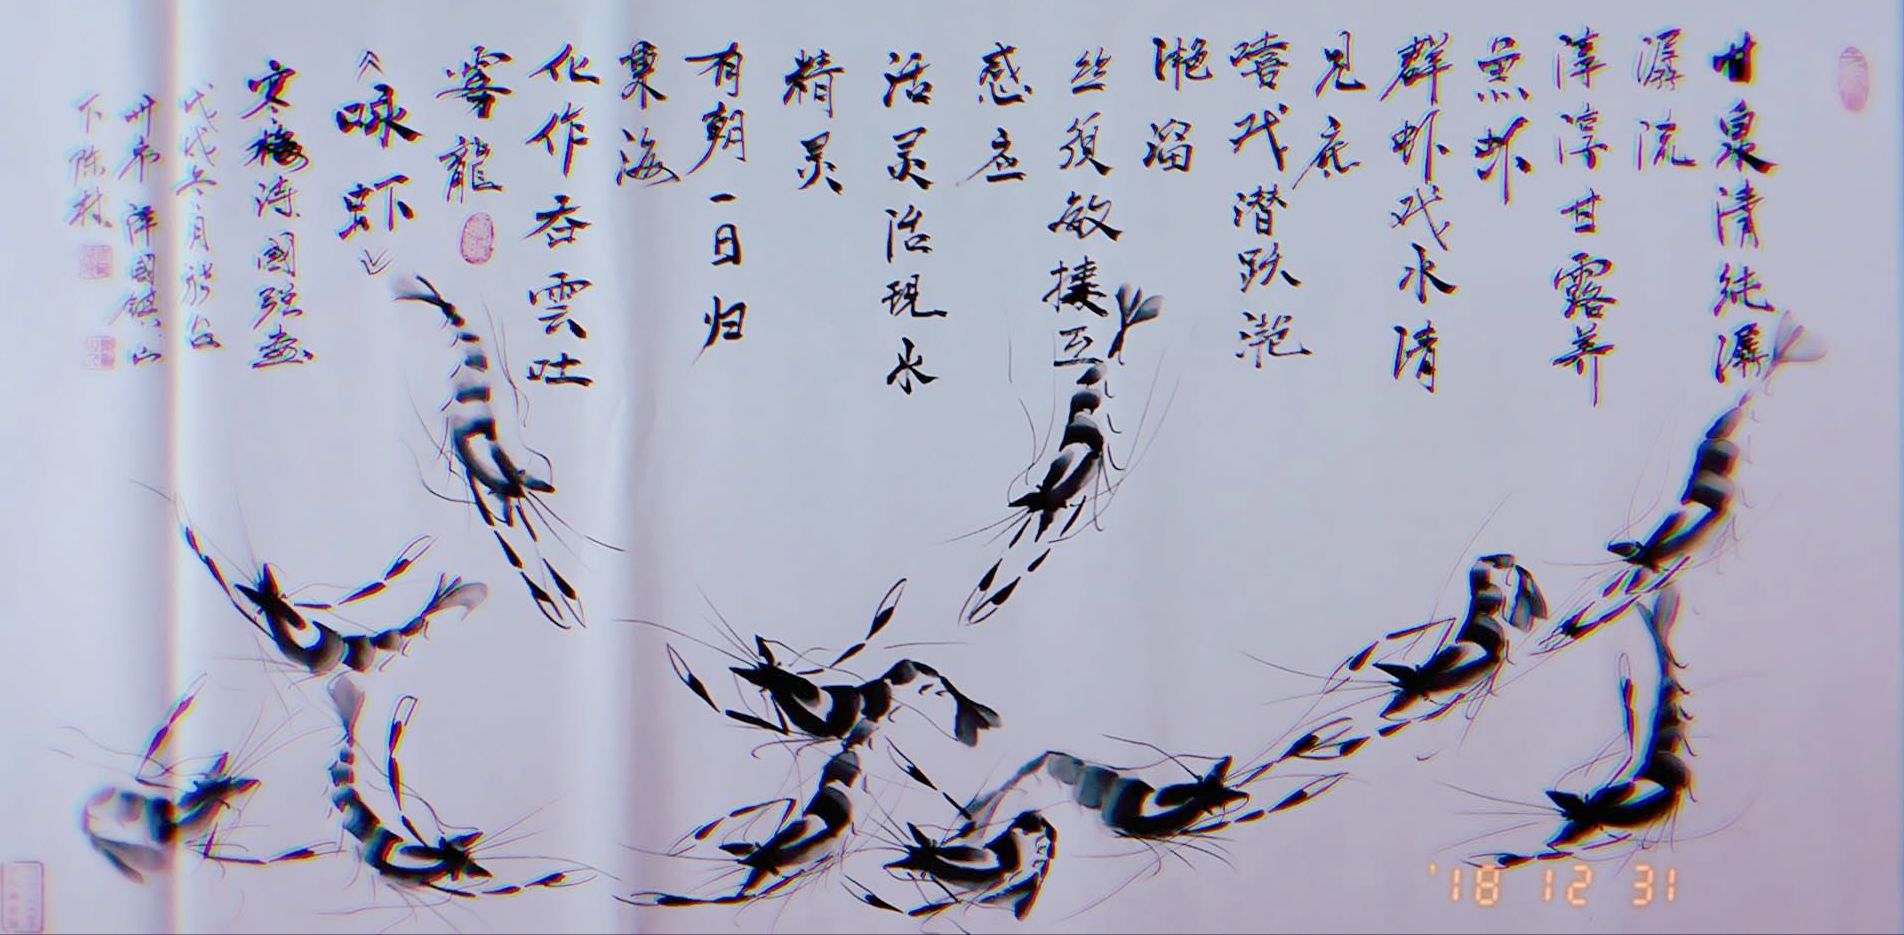 甘泉清纯潺
潺流
淳淳甘露养
鱼虾
群虾戏水清
见底
嘻戏潜跃滟
滟溜
丝须敏捷互
感应
活灵活现水
精灵
有朝一日归
东海
化作吞雲吐
雾龍
《咏虾》
寒梅涛國强画
戊戌冬月於台
州市澤國鎮山
下陈村
'18 12 31